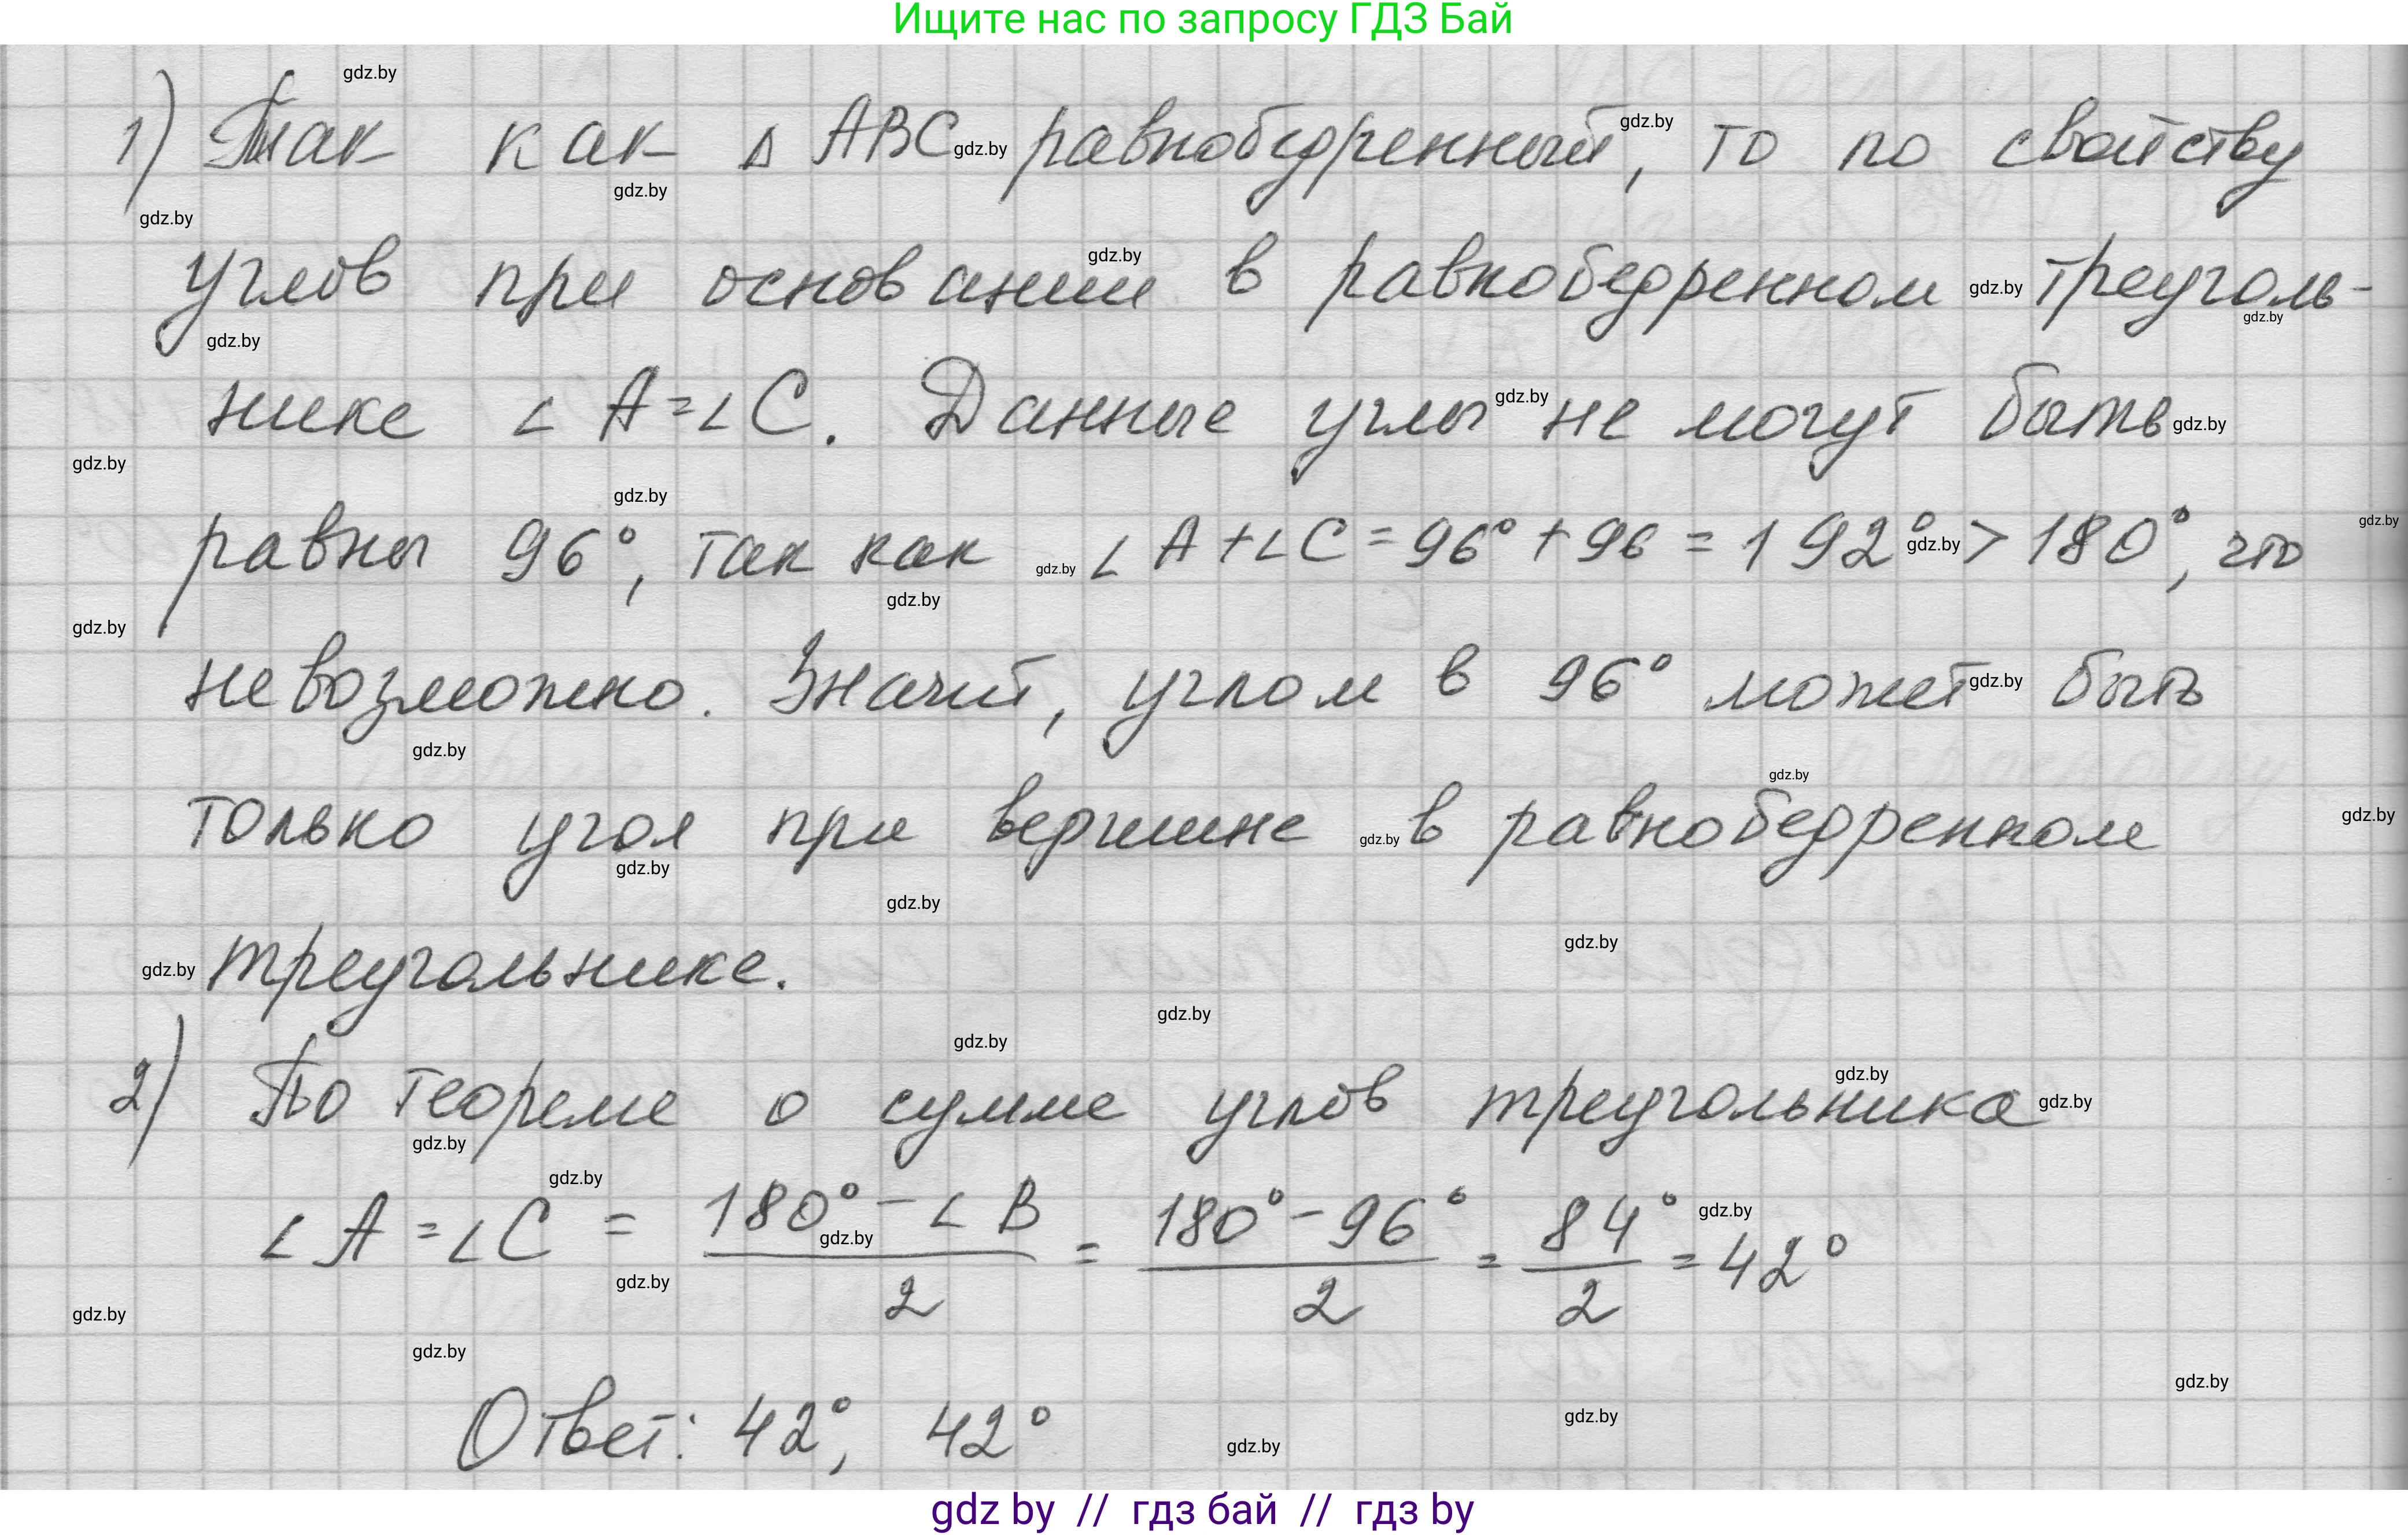 Ищите нас по запросу ГДЗ Бай
1) Так как Δ ABC равнобедренный, то по свойству
углов при основании в равнобедренном треуголь-
нике ∠ A = ∠ C. Данные углы не могут быть
равны 96°, так как ∠ A + ∠ C = 96° + 96 = 192° > 180°, что
невозможно. Значит, углом в 96° может быть
только угол при вершине в равнобедренном
треугольнике.
2) По теореме о сумме углов треугольника
∠ A = ∠ C = (180° - ∠ B)/2 = (180° - 96°)/2 = 84°/2 = 42°
Ответ: 42°, 42°
gdz by // гдз бай // гдз by